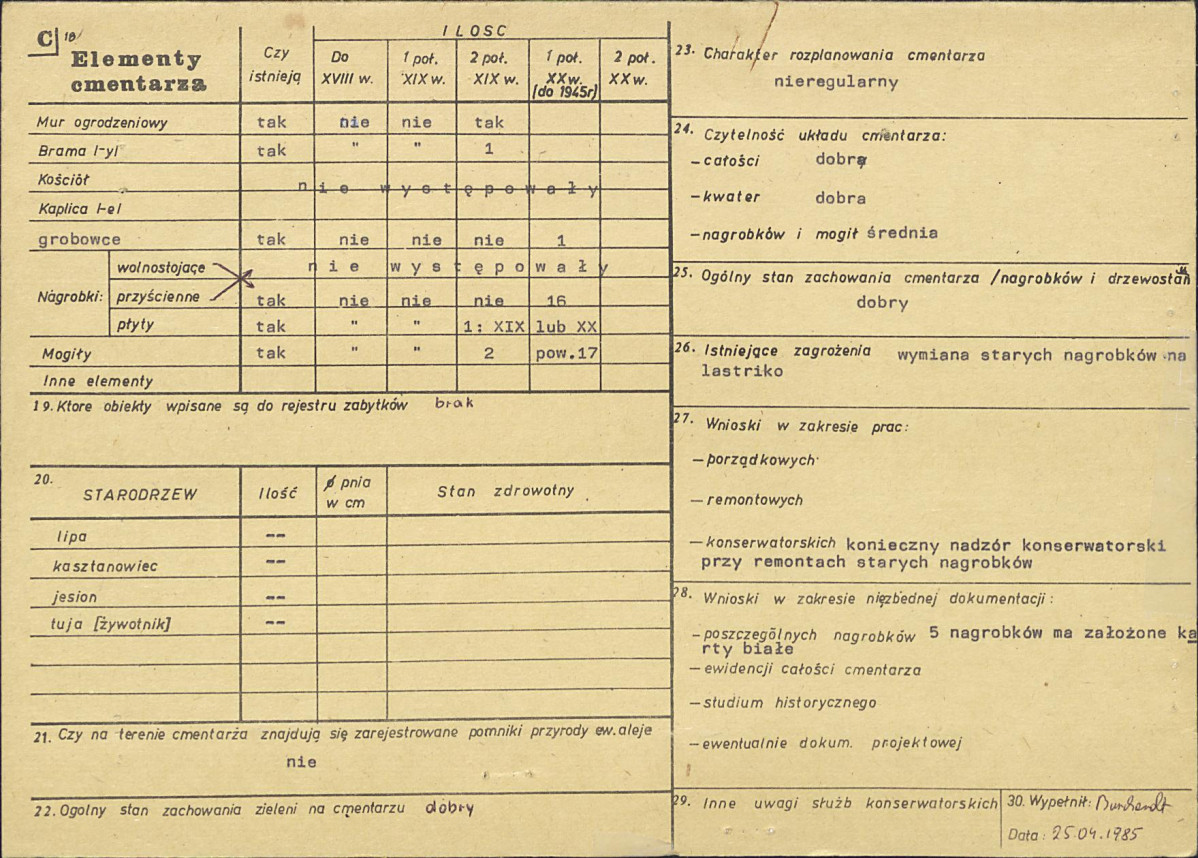 C 18/ Elementy cmentarza
Czy istnieją
ILOSC
Do XVIII w.
1 poł. XIX w.
2 poł. XIX w.
1 poł. XX w. [do 1945r]
2 poł. XX w.
Mur ogrodzeniowy tak nie nie tak
Brama /-y/ tak " " 1
Kościół
nie występowały
Kaplica /-e/
grobowce tak nie nie nie 1
Nagrobki:
wolnostojące nie występowały
przyścienne tak nie nie nie 16
płyty tak " " 1: XIX lub XX
Mogiły tak " " 2 pow.17
Inne elementy
19. Ktore obiekty wpisane są do rejestru zabytków brak
20. STARODRZEW Ilość ϕ pnia w cm Stan zdrowotny
lipa --
kasztanowiec --
jesion --
tuja [żywotnik] --
21. Czy na terenie cmentarza znajdują się zarejestrowane pomniki przyrody ew. aleje
nie
22. Ogolny stan zachowania zieleni na cmentarzu dobry
23. Charakter rozplanowania cmentarza
nieregularny
24. Czytelność układu cmentarza:
– całości dobra
– kwater dobra
– nagrobków i mogił średnia
25. Ogólny stan zachowania cmentarza /nagrobków i drzewostan
dobry
26. Istniejące zagrożenia wymiana starych nagrobków na
lastriko
27. Wnioski w zakresie prac:
– porządkowych
– remontowych
– konserwatorskich konieczny nadzór konserwatorski
przy remontach starych nagrobków
28. Wnioski w zakresie niezbednej dokumentacji:
– poszczególnych nagrobków 5 nagrobków ma założone ka
rty białe
– ewidencji całości cmentarza
– studium historycznego
– ewentualnie dokum. projektowej
29. Inne uwagi służb konserwatorskich
30. Wypełnił: Burchardt
Data: 25.04.1985